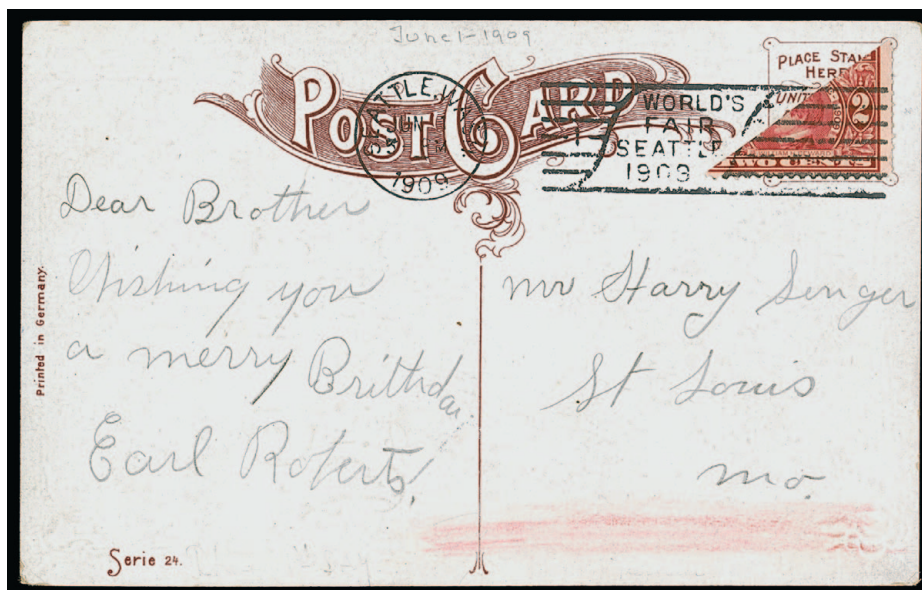 June 1-1909
POST CARD
PLACE STA
HERE
UNIT
2
TWO CENTS
SEATTLE, WASH.
JUN
1909
WORLD'S
FAIR
SEATTLE
1909
Dear Brother
Wishing you
a merry Brithday
Earl Roberts
Mr Harry Senger
St Louis
Mo.
Printed in Germany.
Serie 24.